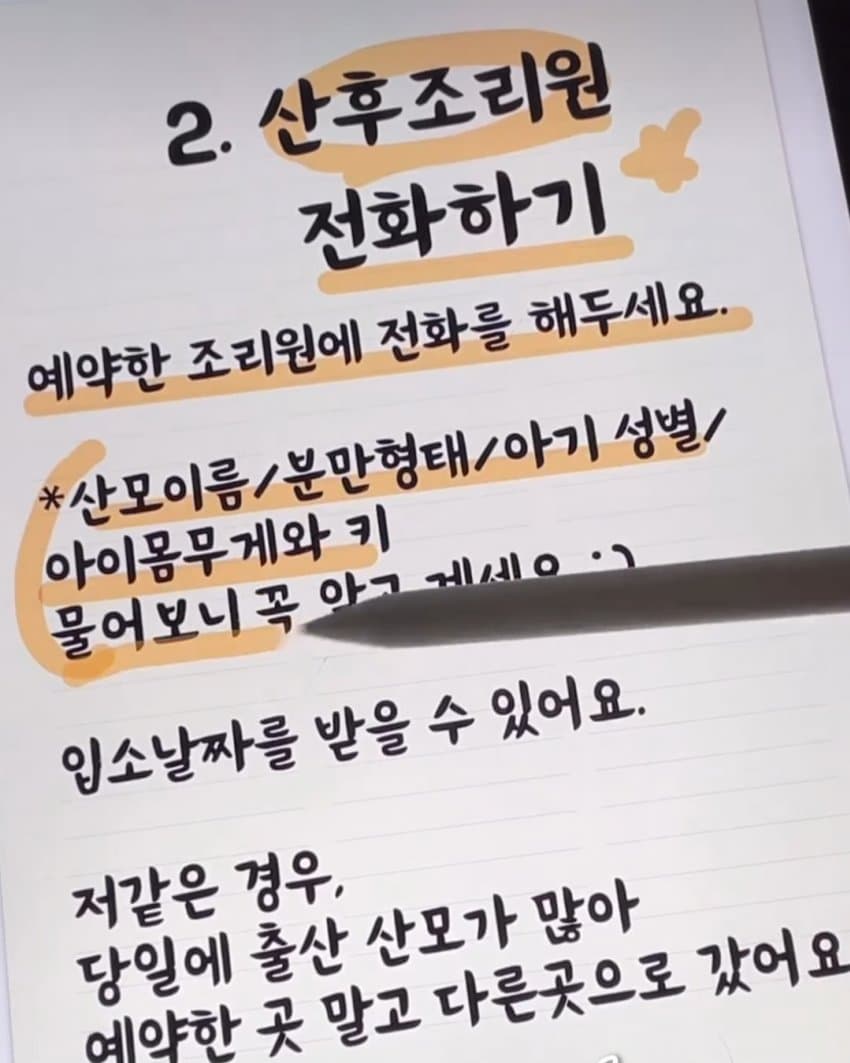 2. 산후조리원
전화하기
예약한 조리원에 전화를 해두세요.
*산모이름/분만형태/아기 성별/
아이몸무게와 키
물어보니 꼭 알고 계세요 :)
입소날짜를 받을 수 있어요.
저같은 경우,
당일에 출산 산모가 많아
예약한 곳 말고 다른곳으로 갔어요